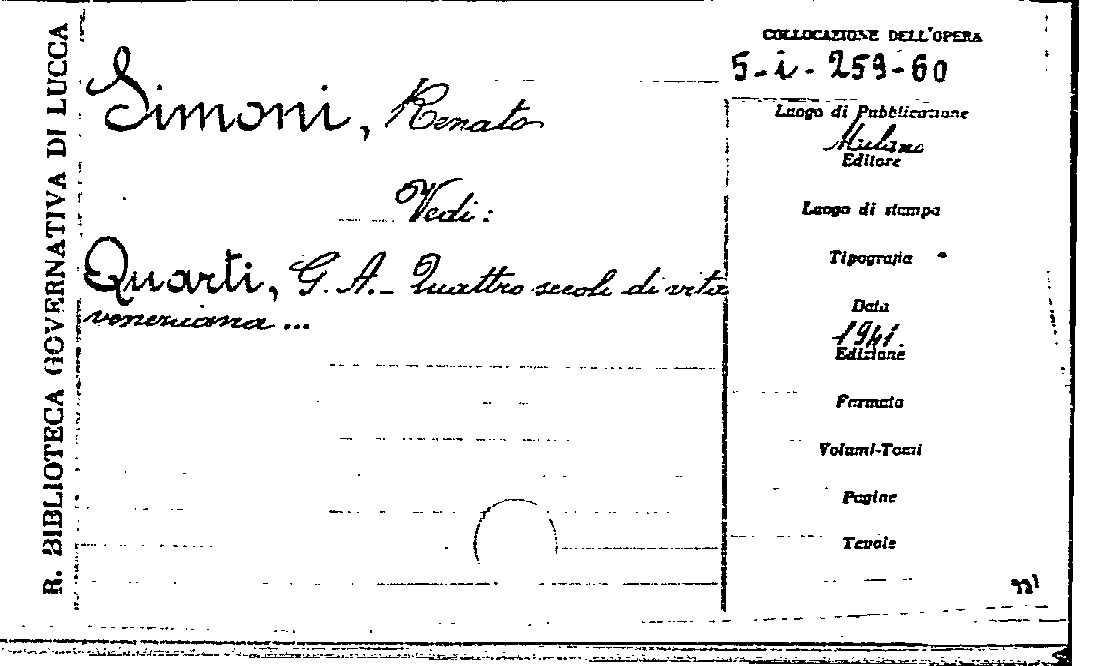 R. BIBLIOTECA GOVERNATIVA DI LUCCA
Simoni, Renato
Vedi:
Quarti, G. A. - Quattro secoli di vita
veneziana ...
COLLOCAZIONE DELL'OPERA
5-i-259-60
Luogo di Pubblicazione
Milano
Editore
Luogo di stampa
Tipografia
Data
1941.
Edizione
Formato
Volumi-Tomi
Pagine
Tavole